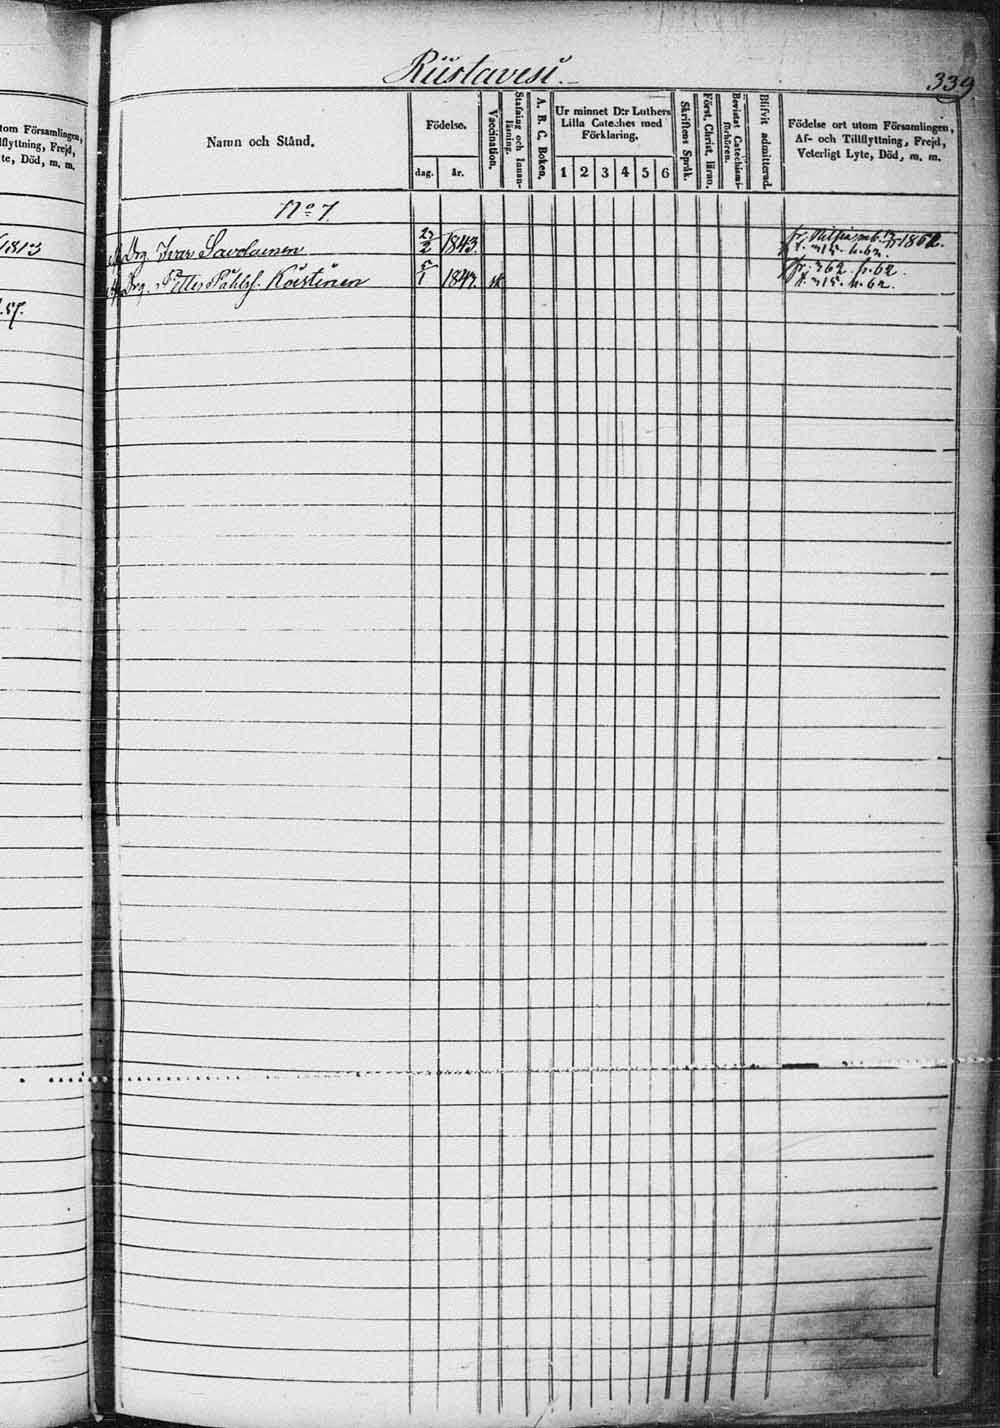 Riistavesi.
339
tom Församlingen,
llflyttning, Frejd,
te, Död, m. m.
Namn och Stånd.
Födelse.
dag.
år.
Vaccination.
Stafning och Innan-
läsning.
A. B. C. Boken.
Ur minnet D:r Luthers
Lilla Cateches med
Förklaring.
1 2 3 4 5 6
Skriftens Språk.
Först. Christ. läran.
Bevistat Catechismi-
förhören.
Blifvit admitterad.
Födelse ort utom Församlingen,
Af- och Tillflyttning, Frejd,
Veterligt Lyte, Död, m. m.
No 7.
1813
Drg Ivar Savolainen 2 1843. fr. 1862.
Drg. Petter Påhlss. Korstinen 5/1 1843. fr. 762. p. 62.
t. 715. p. 62.
57.